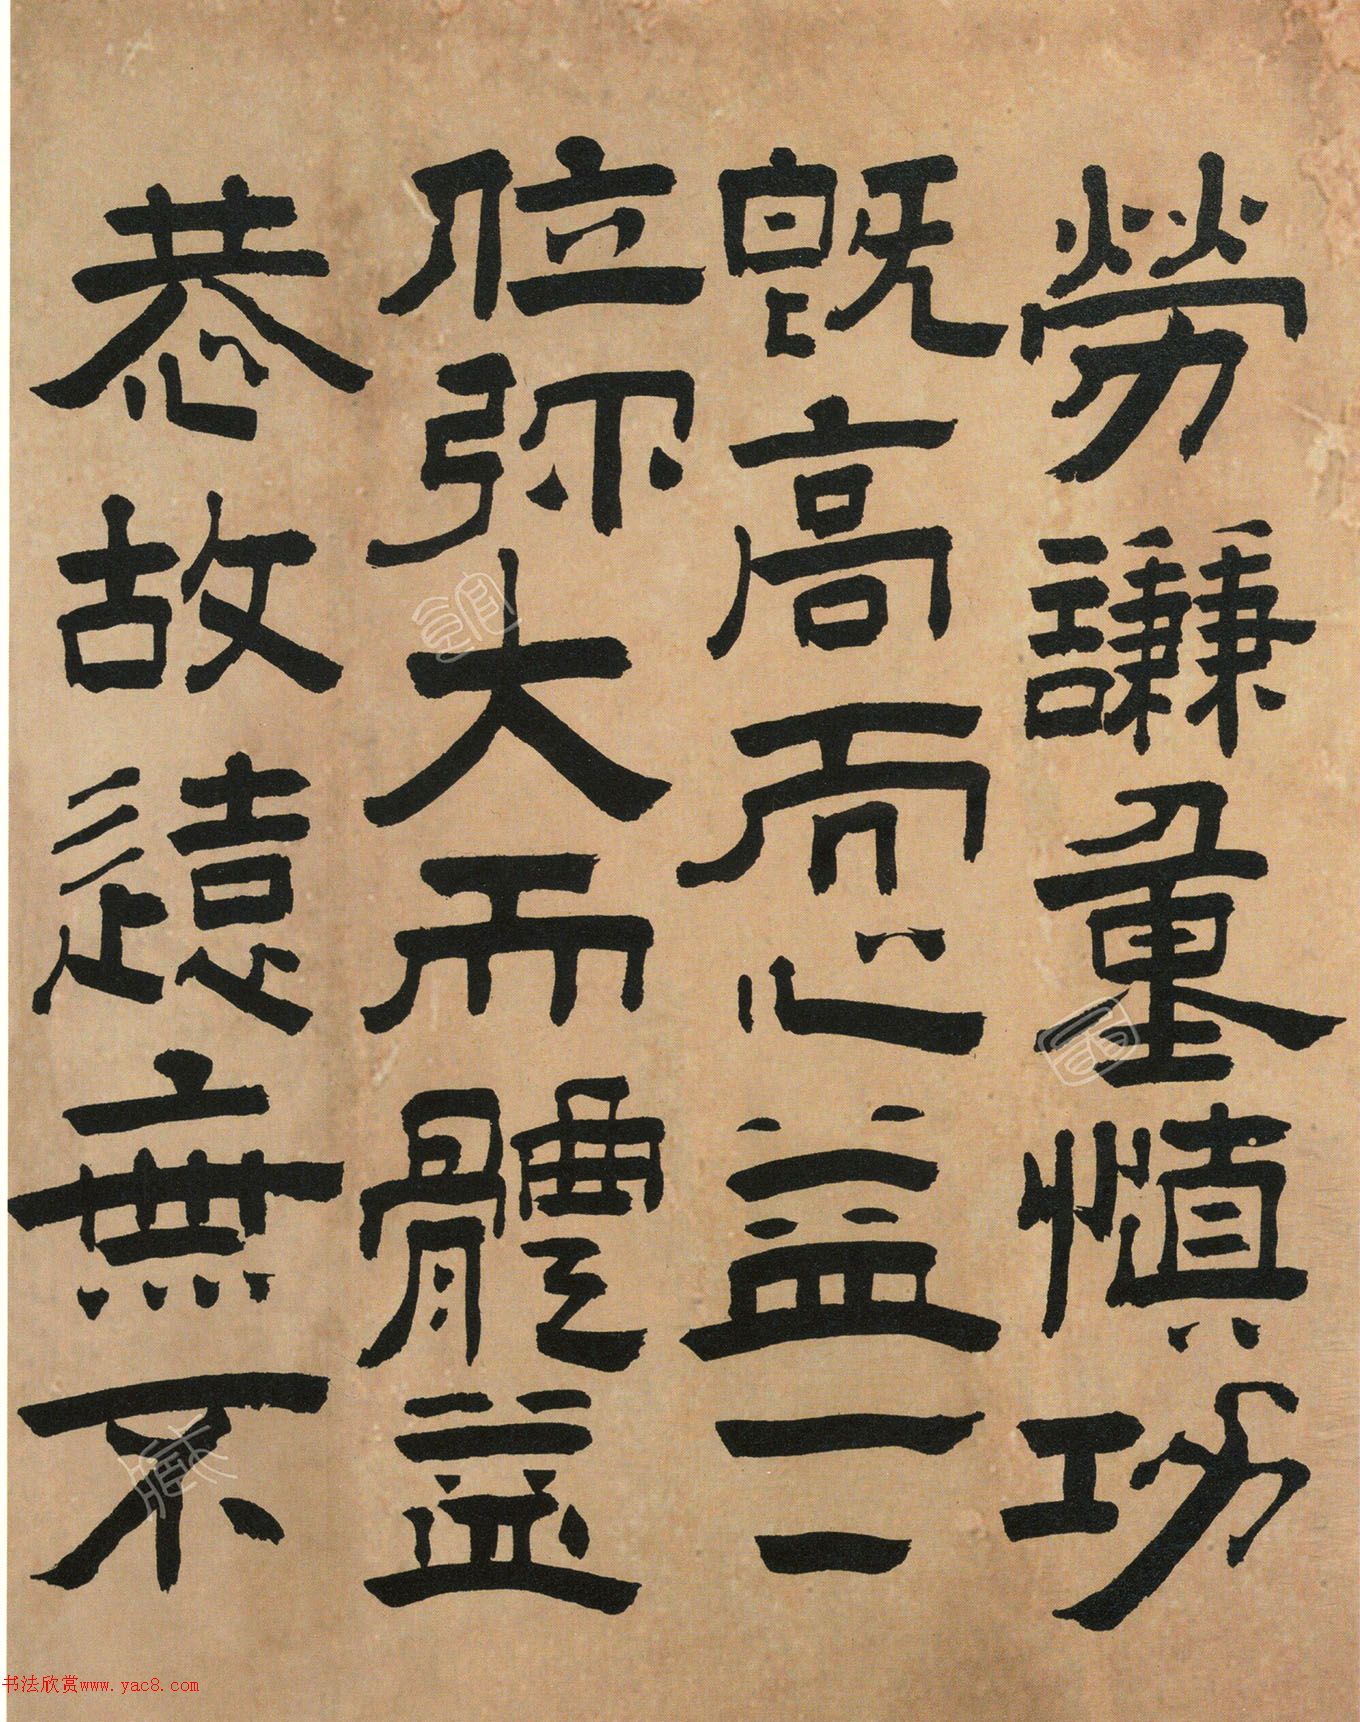 勞謙重慎功
既高而心益下
位弥大而體益
恭故遠無不
书法欣赏www.yac8.com